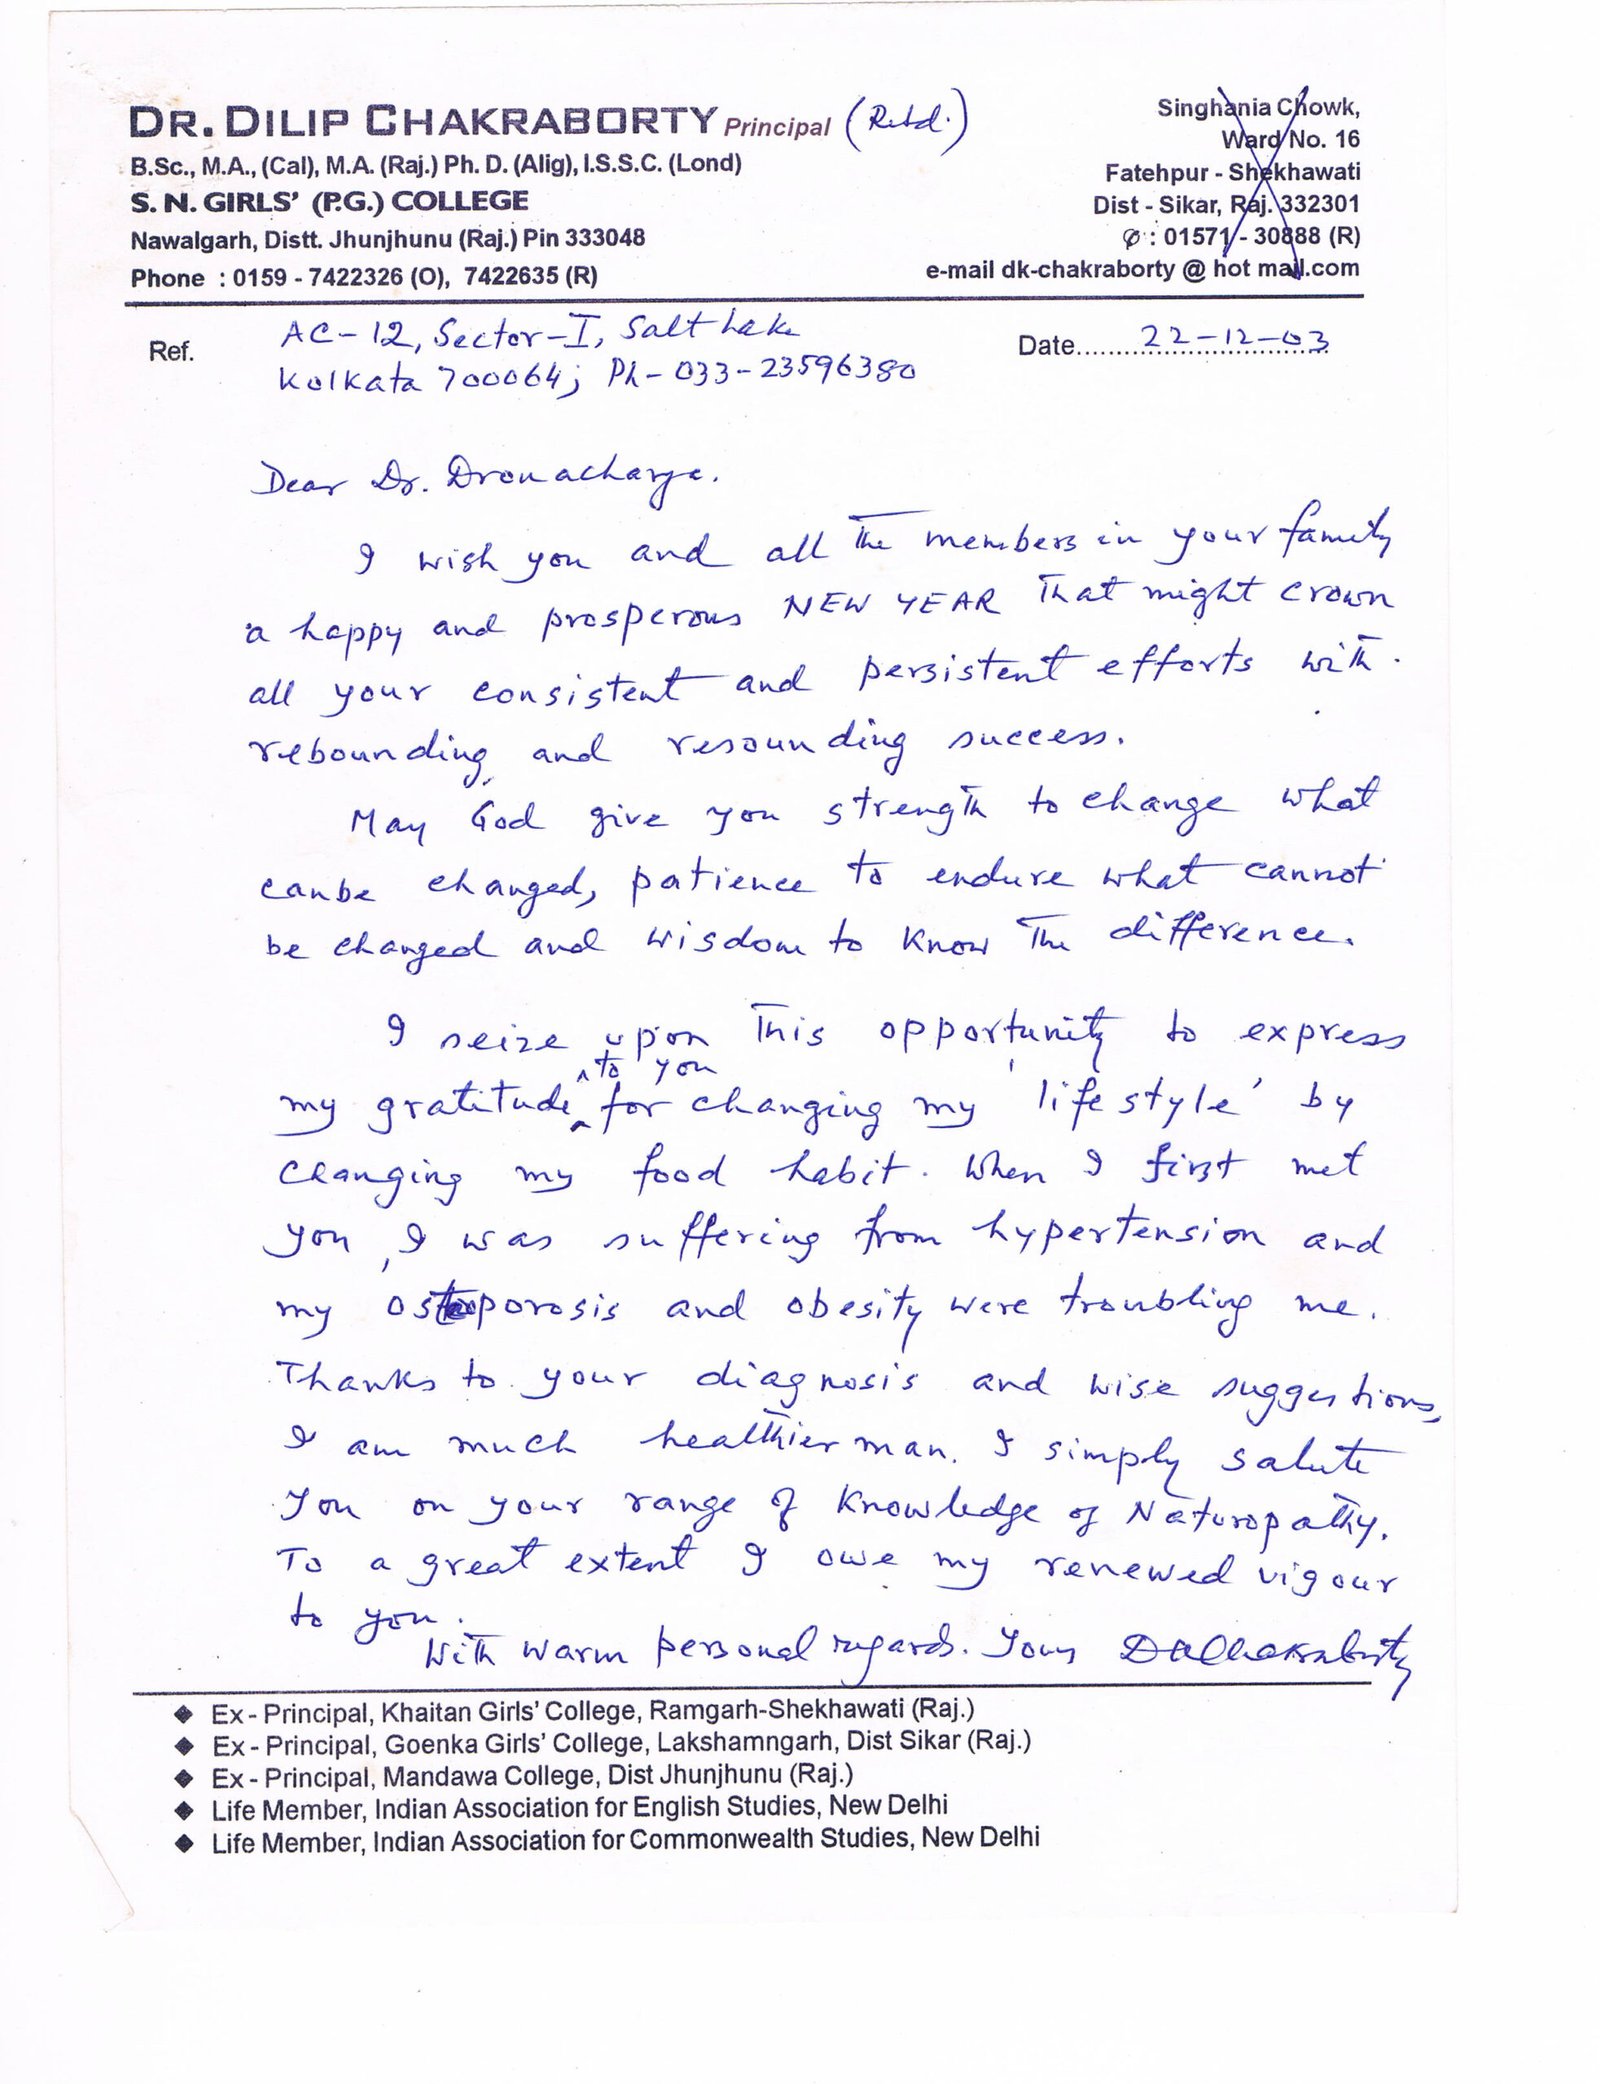 DR. DILIP CHAKRABORTY Principal (Retd.)
B.Sc., M.A., (Cal), M.A. (Raj.) Ph. D. (Alig), I.S.S.C. (Lond)
S. N. GIRLS' (P.G.) COLLEGE
Nawalgarh, Distt. Jhunjhunu (Raj.) Pin 333048
Phone : 0159 - 7422326 (O), 7422635 (R)
Singhania Chowk,
Ward No. 16
Fatehpur - Shekhawati
Dist - Sikar, Raj. 332301
✆ : 01571 - 30888 (R)
e-mail dk-chakraborty @ hot mail.com
Ref. AC-12, Sector-I, Salt Lake
Kolkata 700064; Ph- 033-23596380
Date 22-12-03
Dear Dr. Dronacharya.
I wish you and all the members in your family
a happy and prosperous NEW YEAR That might crown
all your consistent and persistent efforts with
rebounding and resounding success.
May God give you strength to change what
canbe changed, patience to endure what cannot
be changed and wisdom to know the difference.
I seize upon This opportunity to express
my gratitude to you for changing my 'life style' by
changing my food habit. When I first met
you, I was suffering from hypertension and
my osteoporosis and obesity were troubling me.
Thanks to your diagnosis and wise suggestions,
I am much healthier man. I simply salute
you on your range of knowledge of Naturopathy.
To a great extent I owe my renewed vigour
to you.
With warm personal regards. Yours DKChakraborty
◆ Ex - Principal, Khaitan Girls' College, Ramgarh-Shekhawati (Raj.)
◆ Ex - Principal, Goenka Girls' College, Lakshamngarh, Dist Sikar (Raj.)
◆ Ex - Principal, Mandawa College, Dist Jhunjhunu (Raj.)
◆ Life Member, Indian Association for English Studies, New Delhi
◆ Life Member, Indian Association for Commonwealth Studies, New Delhi